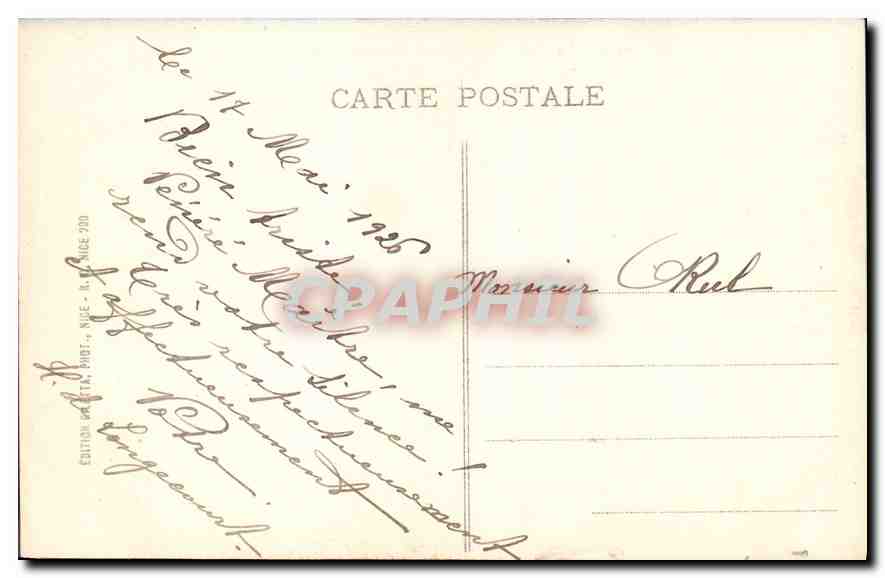 CARTE POSTALE
le 17 Mai 1926
Bien triste
Vénéré Maître! me
rend votre silence!
très respectueusement
et affectueusement
Votre
Longecourt.
Monsieur Rul
ÉDITION PHOT., NICE - R. NICE 200
CPAPHIL